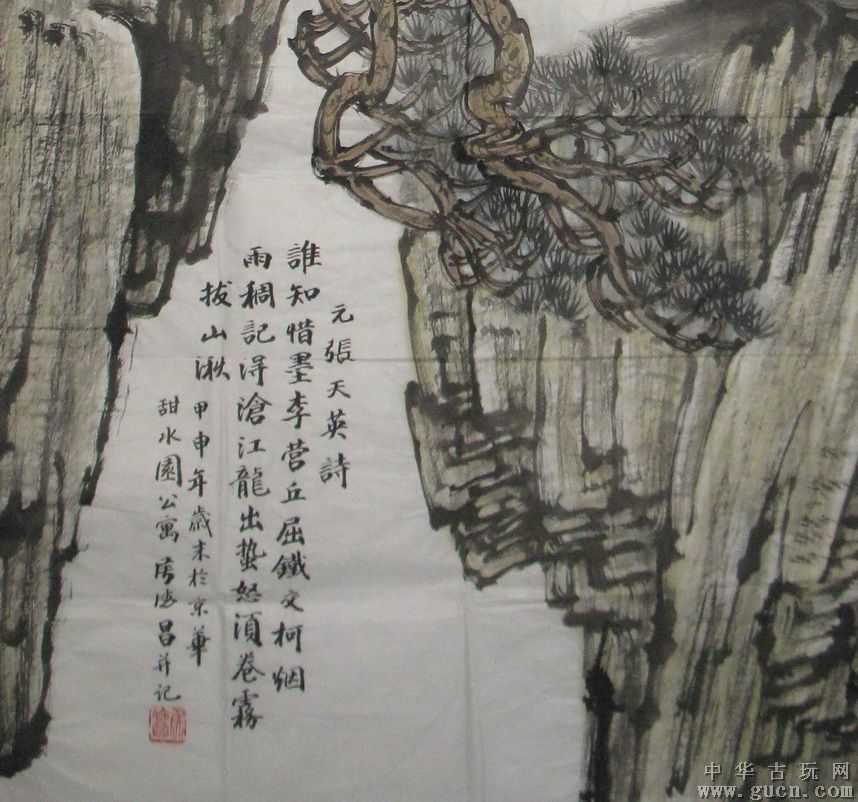 元張天英詩
誰知惜墨李营丘屈鐵交柯烟
雨稠記得滄江龍出蟄怒須卷霧
拔山湫 甲申年歲末於京華
甜水園公寓 房 昌并记
中华古玩网
www.gucn.com